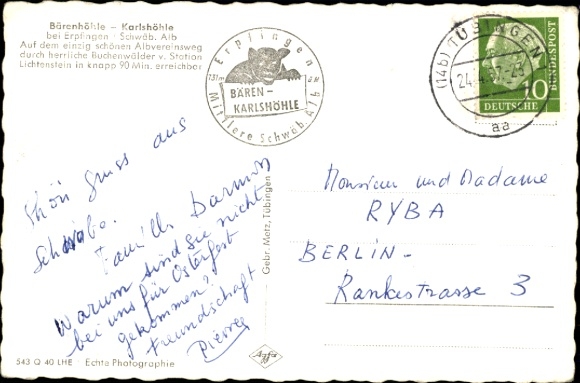 Bärenhöhle – Karlshöhle
bei Erpfingen · Schwäb. Alb
Auf dem einzig schönen Albvereinsweg
durch herrliche Buchenwälder v. Station
Lichtenstein in knapp 90 Min. erreichbar
Erpfingen
BÄREN-
KARLSHÖHLE
Mittlere Schwäb. Alb
(14b) TÜBINGEN
24.4.
aa
10
DEUTSCHE
BUNDESPOST
Schön Gruss aus
Schwabe.
Famille Darmus
Warum sind Sie nicht
bei uns für Osterfest
gekommen?
Freundschaft
Pierre
Gebr. Metz, Tübingen
Monsieur und Madame
RYBA
BERLIN-
Rankestrasse 3
543 Q 40 LHE · Echte Photographie
Agfa